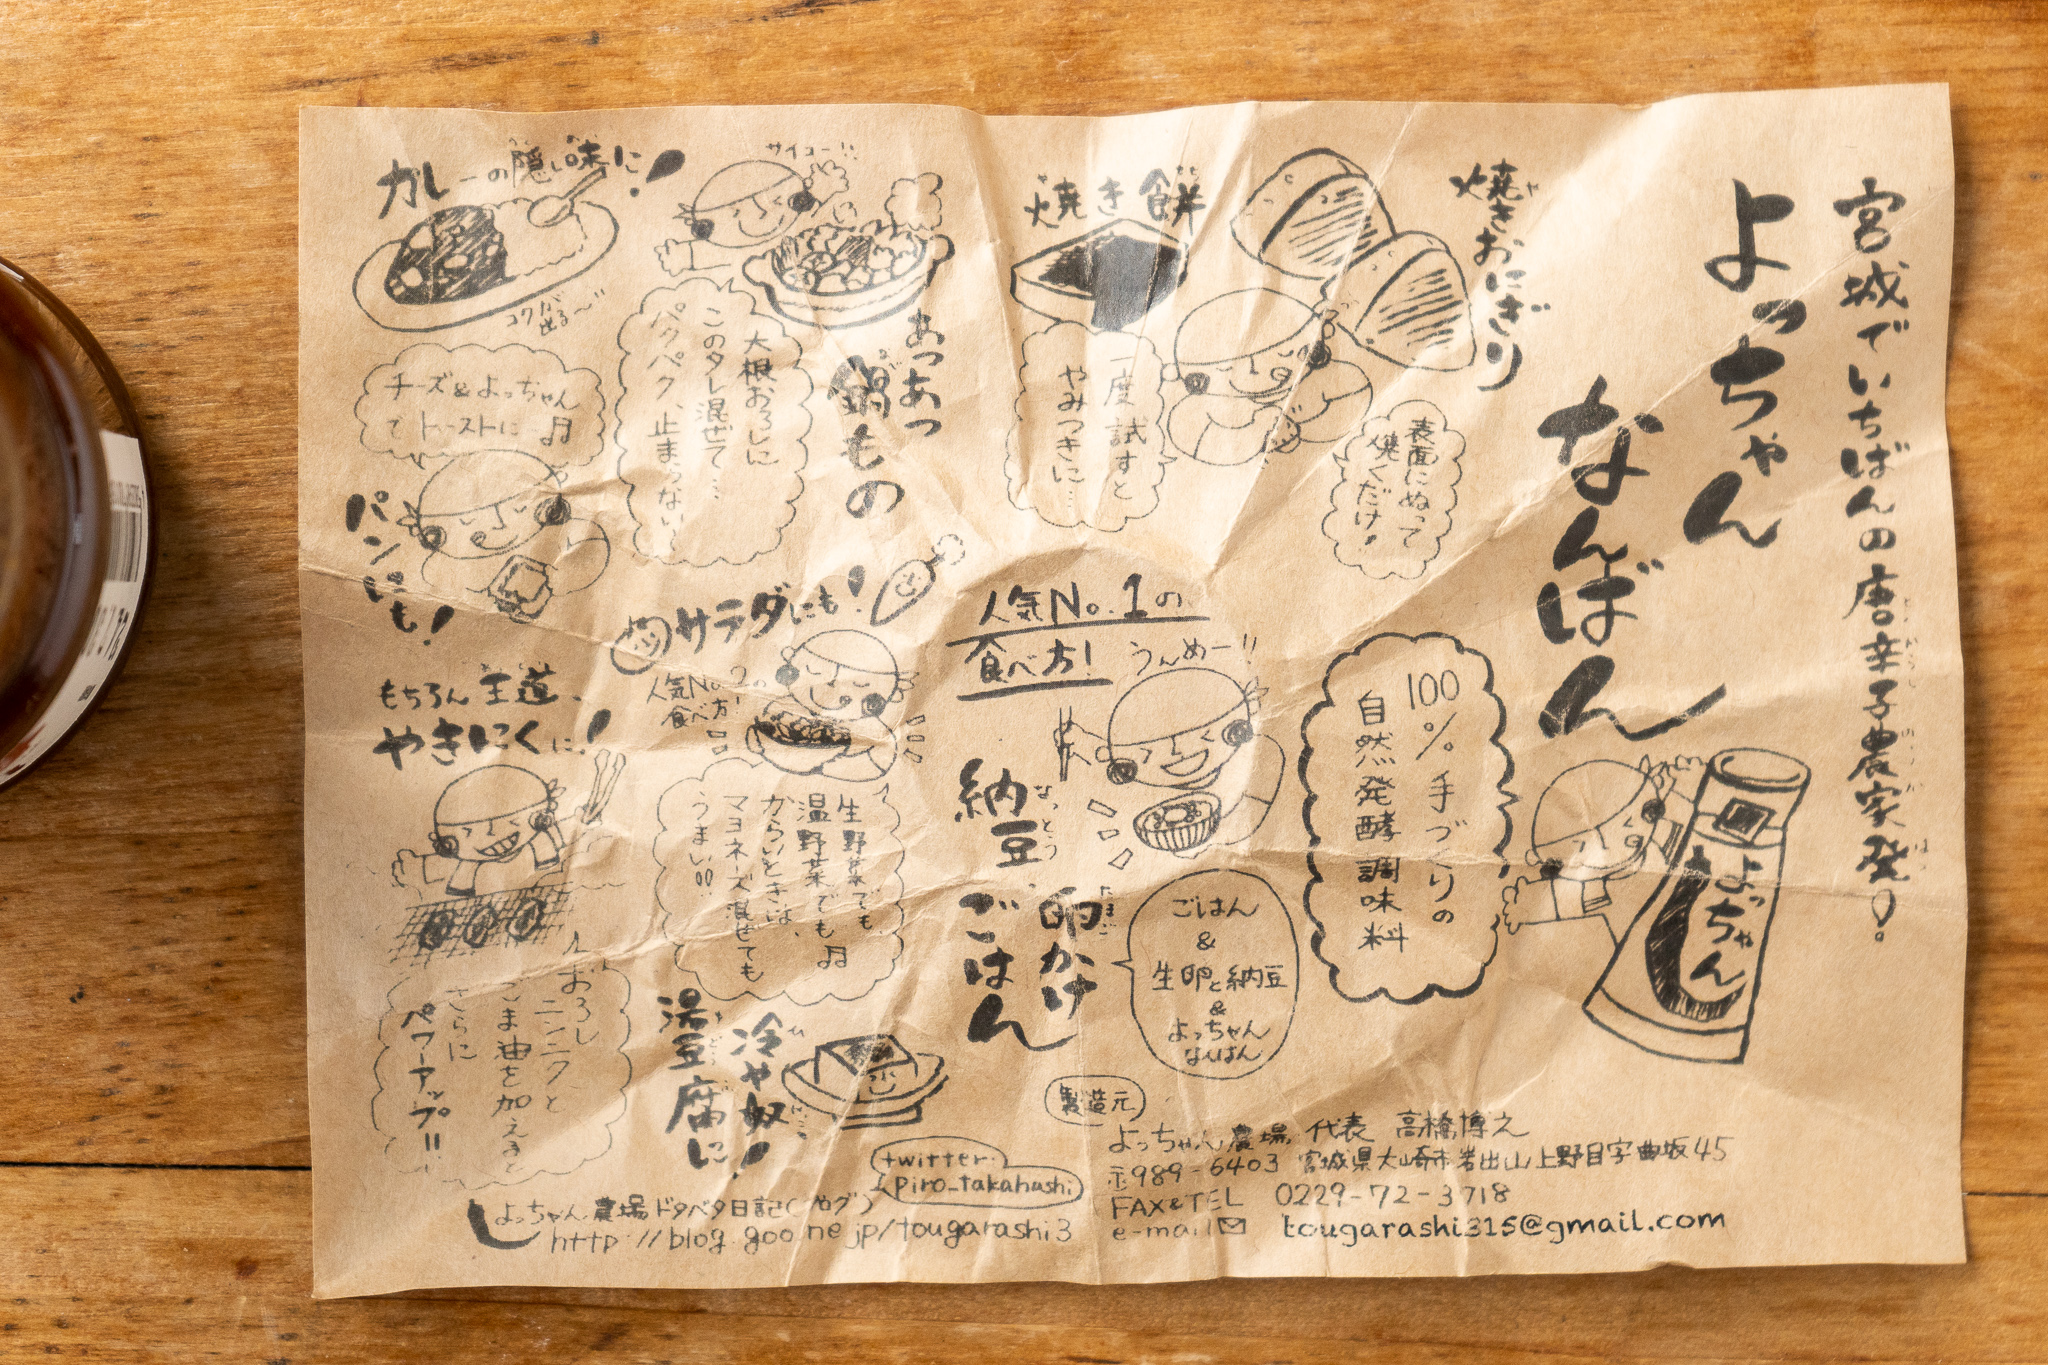 宮城でいちばんの唐辛子農家発!
よっちゃん
なんばん
100%手づくりの
自然発酵調味料
よっちゃん
焼きおにぎり
表面にぬって
焼くだけ!
焼き餅
一度試すと
やみつきに…
サイコー!!
あっあつ
鍋もの
大根おろしに
このタレ混ぜて…
パクパク、止まらない
カレーの隠し味に!
コクが
出る〜!!
チーズ&よっちゃん
でトーストに♫
パンにも!
人気No.1の
食べ方!
うんめー!!
納豆
なっとう
卵かけ
たまご
ごはん
ごはん
&
生卵と納豆
&
よっちゃん
なんばん
サラダにも!
人気No.2の
食べ方!
生野菜でも
温野菜でも♫
からいときは、
マヨネーズ混ぜても
うまい!!
もちろん王道、
やきにくに!
おろし
ニンニクと
ごま油を加えると
さらに
パワーアップ!!
冷や奴
湯豆腐に!
製造元
よっちゃん農場 代表 高橋博之
〒989-6403 宮城県大崎市岩出山上野目字曲坂45
FAX&TEL 0229-72-3718
e-mail tougarashi315@gmail.com
twitter
piro_takahashi
よっちゃん農場ドタバタ日記(ブログ)
http://blog.goo.ne.jp/tougarashi3